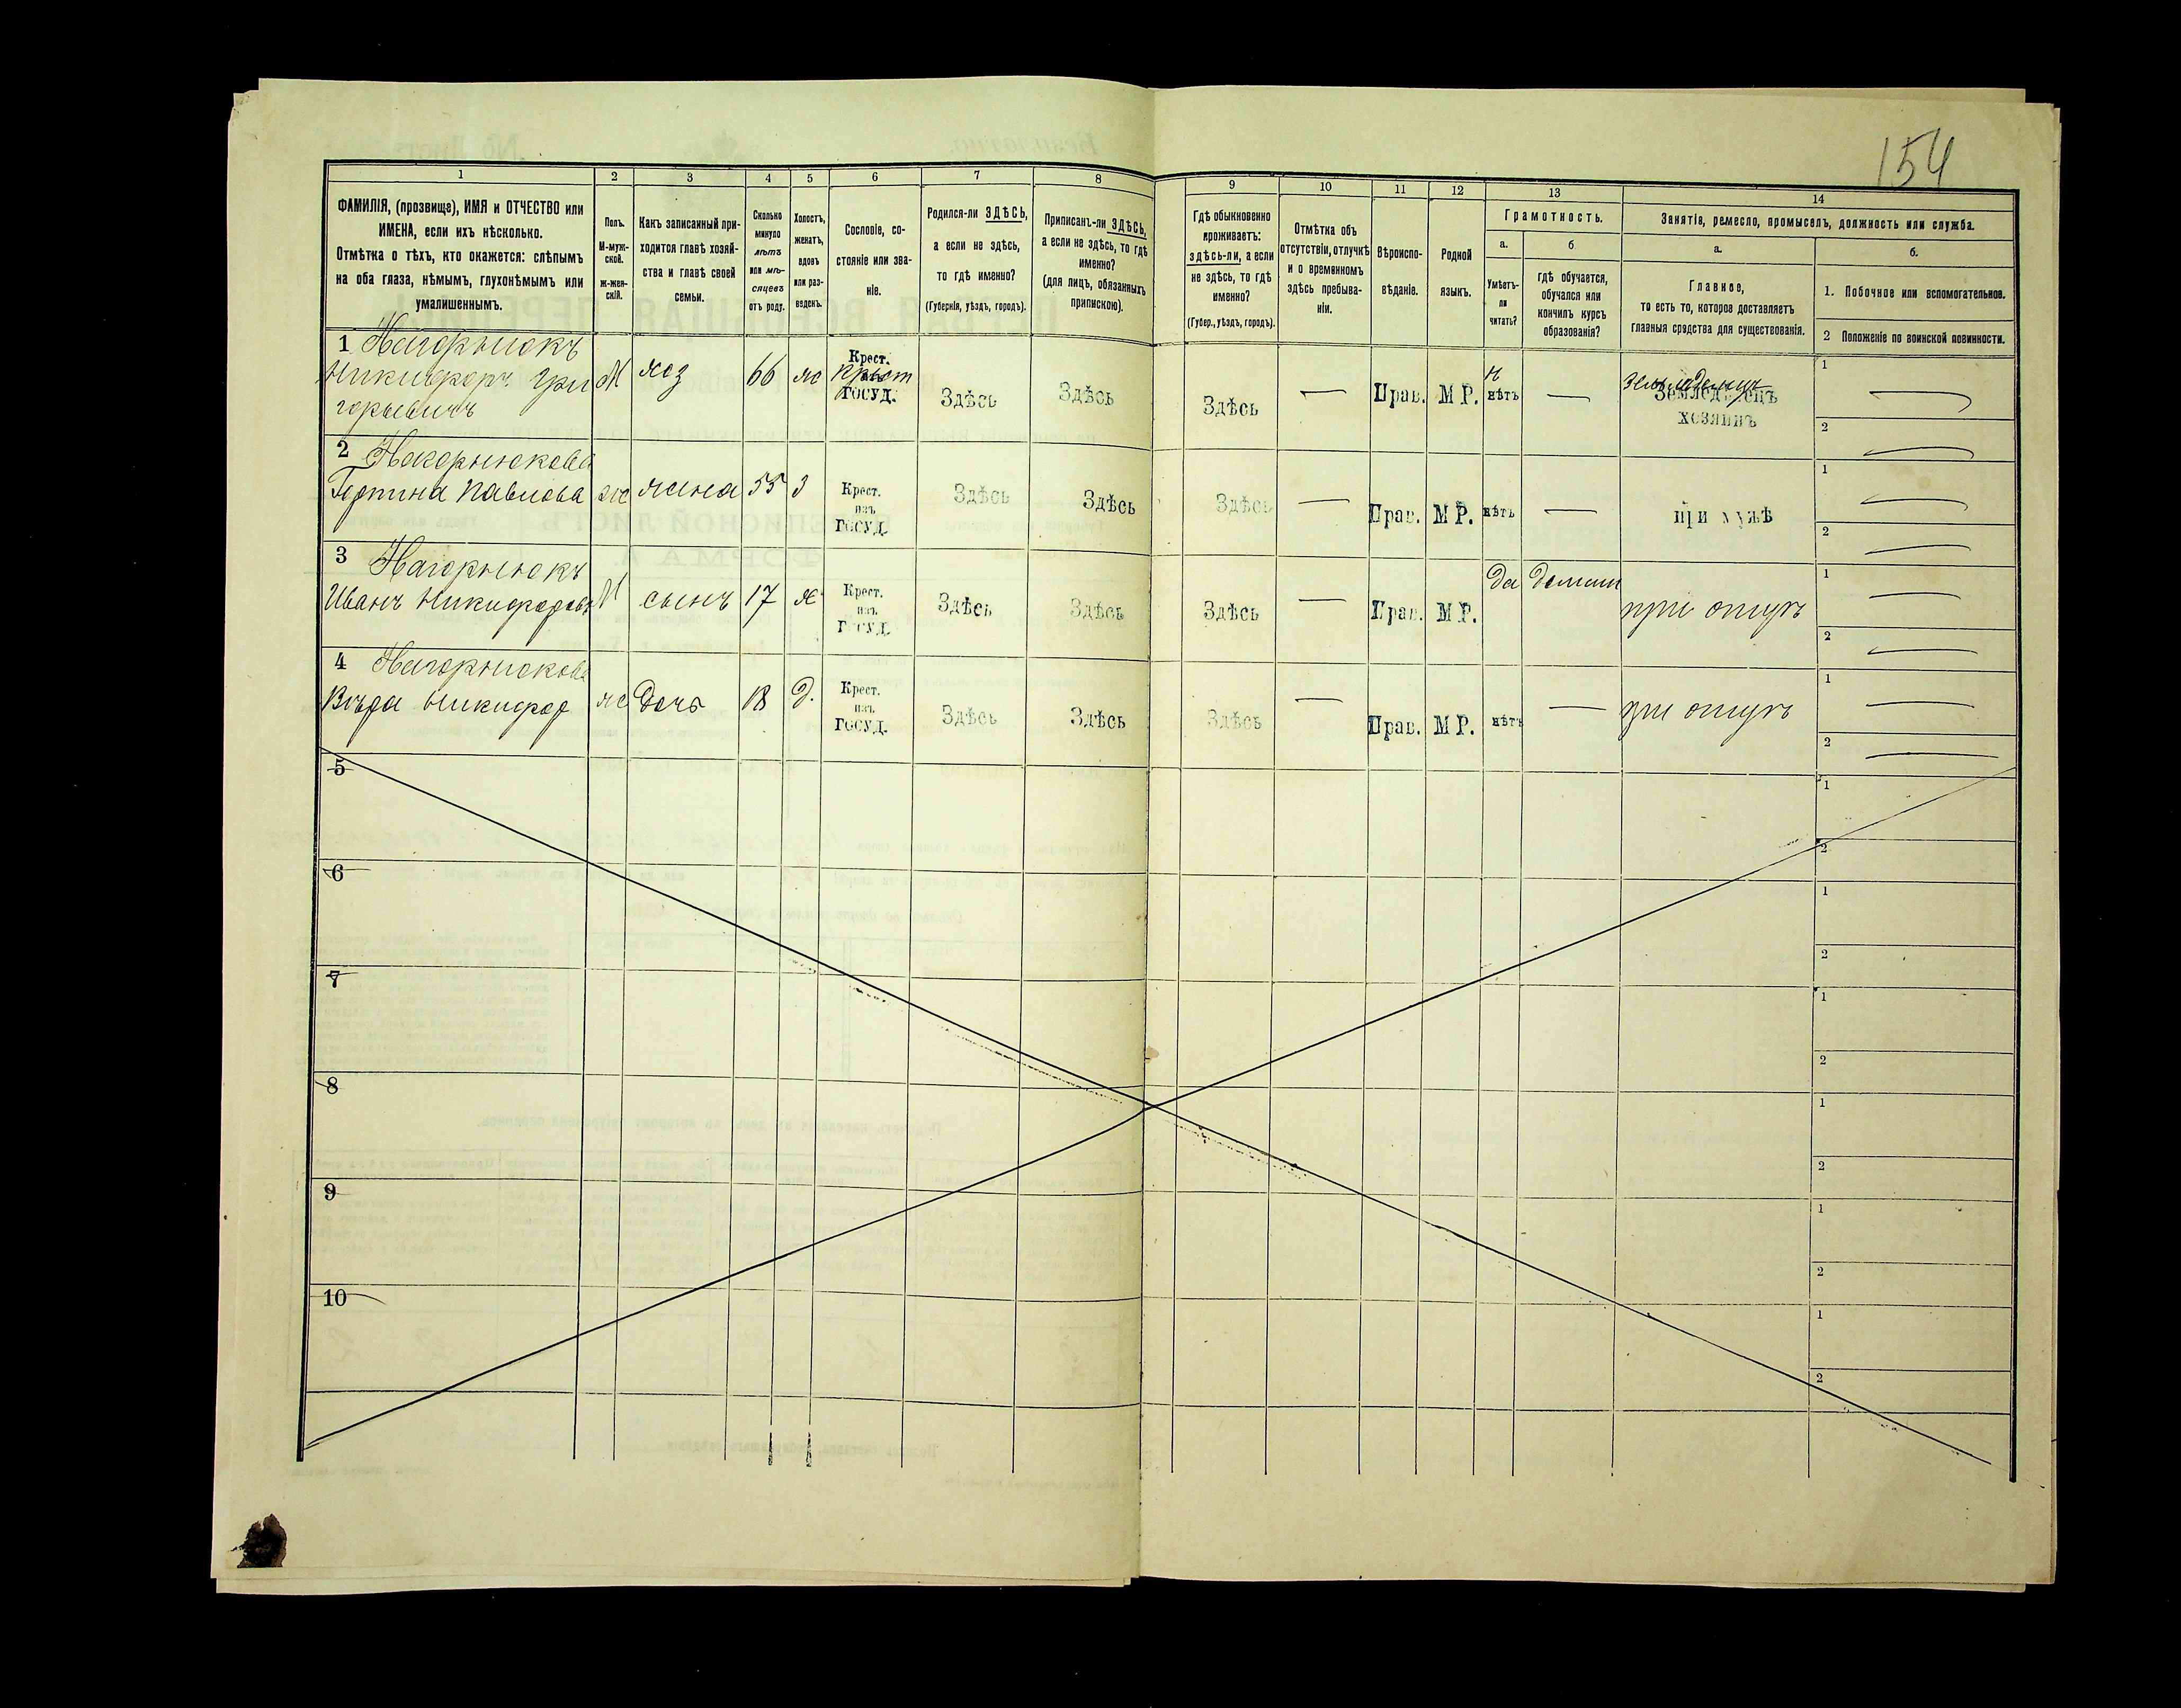 154
1 2 3 4 5 6 7 8 9 10 11 12 13 14
ФАМИЛІЯ, (прозвище), ИМЯ и ОТЧЕСТВО или
ИМЕНА, если ихъ нѣсколько.
Отмѣтка о тѣхъ, кто окажется: слѣпымъ
на оба глаза, нѣмымъ, глухонѣмымъ или
умалишеннымъ.
Полъ.
М-муж-
ской.
Ж-жен-
скій.
Какъ записанный при-
ходится главѣ хозяй-
ства и главѣ своей
семьи.
Сколько
минуло
лѣтъ
или мѣ-
сяцевъ
отъ роду.
Холостъ,
женатъ,
вдовъ
или раз-
веденъ.
Сословіе, со-
стояніе или зва-
ніе.
Родился-ли ЗДѢСЬ,
а если не здѣсь,
то гдѣ именно?
(Губернія, уѣздъ, городъ).
Приписанъ-ли ЗДѢСЬ,
а если не здѣсь, то гдѣ
именно?
(для лицъ, обязанныхъ
припискою).
Гдѣ обыкновенно
проживаетъ:
здѣсь-ли, а если
не здѣсь, то гдѣ
именно?
(Губер., уѣздъ, городъ).
Отмѣтка объ
отсутствіи, отлучкѣ
и о временномъ
здѣсь пребыва-
ніи.
Вѣроиспо-
вѣданіе.
Родной
языкъ.
Грамотность.
а. б
Умѣетъ-
ли
читать?
гдѣ обучается,
обучался или
кончилъ курсъ
образованія?
Занятія, ремесло, промыселъ, должность или служба.
а. б.
Главное,
то есть то, которое доставляетъ
главныя средства для существованія.
1. Побочное или вспомогательное.
2 Положеніе по воинской повинности.
1 Нагорнюкъ
Никифоръ Гри
горьевичъ
М хоз 66 ж
Крест.
ГОСУД.
Здѣсь Здѣсь Здѣсь — Прав. М Р. нѣтъ —
Земледѣлецъ
хозяинъ
1
2
2 Нагорнюкова
Горпина Павлова ж жена 55 З
Крест.
изъ
ГОСУД.
Здѣсь Здѣсь Здѣсь — Прав. М Р. нѣтъ — при мужѣ
1
2
3 Нагорнюкъ
Иванъ Никифоровъ М сынъ 17 х
Крест.
изъ
ГОСУД.
Здѣсь Здѣсь Здѣсь — Прав. М Р. да
при отцѣ
1
2
4 Нагорнюкова
Вѣра Никифор ж дочь 18 д.
Крест.
изъ
ГОСУД.
Здѣсь Здѣсь Здѣсь — Прав. М Р. нѣтъ — при отцѣ
1
2
5 1
2
6 1
2
7 1
2
8 1
2
9 1
2
10 1
2